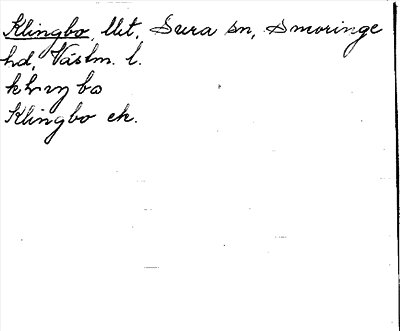 Klingbo, Ut, Sura sn, Snevringe
hd, Västm. l.
Klingbo ek.